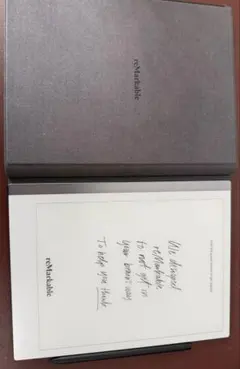 reMarkable
We designed
reMarkable
to not get in
your brain's way
To help you think
reMarkable